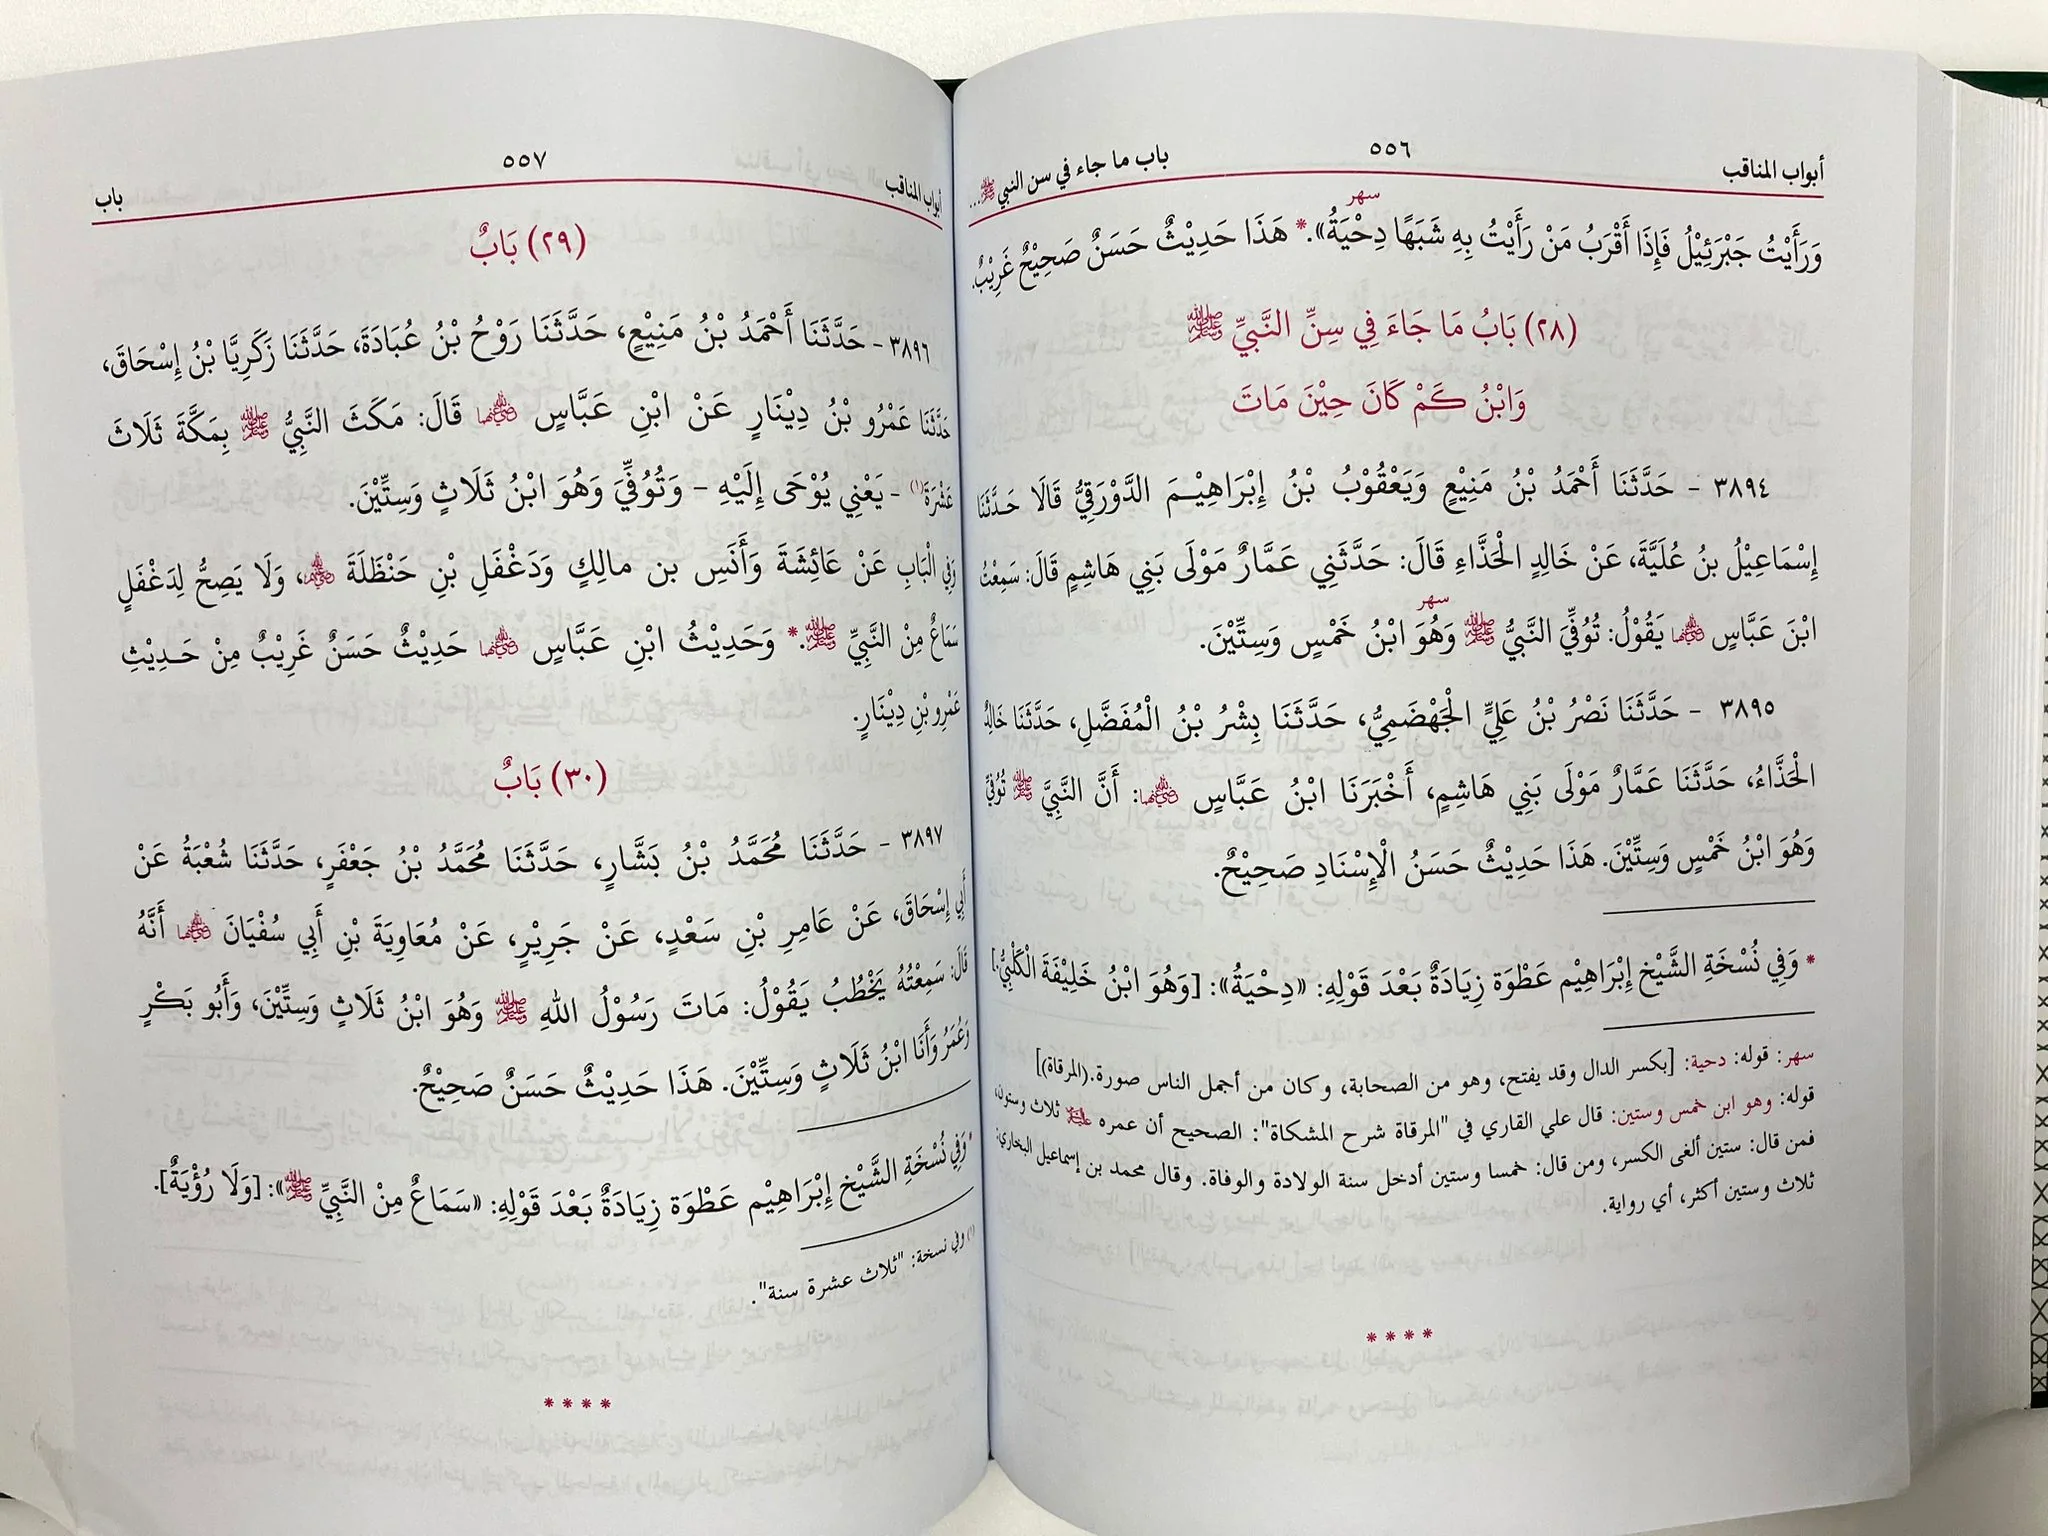 أبواب المناقب ٥٥٦ باب ما جاء في سن النبي ﷺ...
سهر
وَرَأَيْتُ جَبْرَئِيْلُ فَإِذَا أَقْرَبُ مَنْ رَأَيْتُ بِهِ شَبَهًا دِحْيَةُ».* هَذَا حَدِيْثٌ حَسَنٌ صَحِيْحٌ غَرِيْبٌ.
(٢٨) بَابُ مَا جَاءَ فِي سِنِّ النَّبِيِّ ﷺ
وَابْنُ كَمْ كَانَ حِيْنَ مَاتَ
٣٨٩٤ - حَدَّثَنَا أَحْمَدُ بْنُ مَنِيْعٍ وَيَعْقُوْبُ بْنُ إِبْرَاهِيْمَ الدَّوْرَقِيُّ قَالَا حَدَّثَنَا
إِسْمَاعِيْلُ بنُ عُلَيَّةَ، عَنْ خَالِدٍ الْحَذَّاءِ قَالَ: حَدَّثَنِي عَمَّارٌ مَوْلَى بَنِي هَاشِمٍ قَالَ: سَمِعْتُ
سهر
ابْنَ عَبَّاسٍ رضي الله عنهما يَقُوْلُ: تُوُفِّيَ النَّبِيُّ ﷺ وَهُوَ ابْنُ خَمْسٍ وَسِتِّيْنَ.
٣٨٩٥ - حَدَّثَنَا نَصْرُ بْنُ عَلِيٍّ الْجَهْضَمِيُّ، حَدَّثَنَا بِشْرُ بْنُ الْمُفَضَّلِ، حَدَّثَنَا خَالِدٌ
الْحَذَّاءُ، حَدَّثَنَا عَمَّارٌ مَوْلَى بَنِي هَاشِمٍ، أَخْبَرَنَا ابْنُ عَبَّاسٍ رضي الله عنهما: أَنَّ النَّبِيَّ ﷺ تُوُفِّيَ
وَهُوَ ابْنُ خَمْسٍ وَسِتِّيْنَ. هَذَا حَدِيْثٌ حَسَنُ الْإِسْنَادِ صَحِيْحٌ.
* وَفِي نُسْخَةِ الشَّيْخ إِبْرَاهِيْم عَطْوَة زِيَادَةٌ بَعْدَ قَوْلِهِ: «دِحْيَةُ»: [وَهُوَ ابْنُ خَلِيْفَةَ الْكَلْبِيُّ.]
سهر: قوله: دحية: [بكسر الدال وقد يفتح، وهو من الصحابة، وكان من أجمل الناس صورة.(المرقاة)]
قوله: وهو ابن خمس وستين: قال علي القاري في "المرقاة شرح المشكاة": الصحيح أن عمره عليه السلام ثلاث وستون،
فمن قال: ستين ألغى الكسر، ومن قال: خمسا وستين أدخل سنة الولادة والوفاة. وقال محمد بن إسماعيل البخاري:
ثلاث وستين أكثر، أي رواية.
* * * *
أبواب المناقب ٥٥٧ باب
(٢٩) بَابٌ
٣٨٩٦ - حَدَّثَنَا أَحْمَدُ بْنُ مَنِيْعٍ، حَدَّثَنَا رَوْحُ بْنُ عُبَادَةَ، حَدَّثَنَا زَكَرِيَّا بْنُ إِسْحَاقَ،
حَدَّثَنَا عَمْرُو بْنُ دِيْنَارٍ عَنْ ابْنِ عَبَّاسٍ رضي الله عنهما قَالَ: مَكَثَ النَّبِيُّ ﷺ بِمَكَّةَ ثَلَاثَ
عَشْرَةَ(١) - يَعْنِي يُوْحَى إِلَيْهِ - وَتُوُفِّيَ وَهُوَ ابْنُ ثَلَاثٍ وَسِتِّيْنَ.
وَفِي الْبَابِ عَنْ عَائِشَةَ وَأَنَسِ بن مالِكٍ وَدَغْفَلِ بْنِ حَنْظَلَةَ رضي الله عنهم، وَلَا يَصِحُّ لِدَغْفَلٍ
سَمَاعٌ مِنْ النَّبِيِّ ﷺ.* وَحَدِيْثُ ابْنِ عَبَّاسٍ رضي الله عنهما حَدِيْثٌ حَسَنٌ غَرِيْبٌ مِنْ حَدِيْثِ
عَمْرِو بْنِ دِيْنَارٍ.
(٣٠) بَابٌ
٣٨٩٧ - حَدَّثَنَا مُحَمَّدُ بْنُ بَشَّارٍ، حَدَّثَنَا مُحَمَّدُ بْنُ جَعْفَرٍ، حَدَّثَنَا شُعْبَةُ عَنْ
أَبِي إِسْحَاقَ، عَنْ عَامِرِ بْنِ سَعْدٍ، عَنْ جَرِيْرٍ، عَنْ مُعَاوِيَةَ بْنِ أَبِي سُفْيَانَ رضي الله عنهما أَنَّهُ
قَالَ: سَمِعْتُهُ يَخْطُبُ يَقُوْلُ: مَاتَ رَسُوْلُ اللهِ ﷺ وَهُوَ ابْنُ ثَلَاثٍ وَسِتِّيْنَ، وَأَبُو بَكْرٍ
وَعُمَرُ وَأَنَا ابْنُ ثَلَاثٍ وَسِتِّيْنَ. هَذَا حَدِيْثٌ حَسَنٌ صَحِيْحٌ.
* وَفِي نُسْخَةِ الشَّيْخ إِبْرَاهِيْم عَطْوَة زِيَادَةٌ بَعْدَ قَوْلِهِ: «سَمَاعٌ مِنْ النَّبِيِّ ﷺ»: [وَلَا رُؤْيَةٌ].
(١) وفي نسخة: "ثلاث عشرة سنة".
* * * *